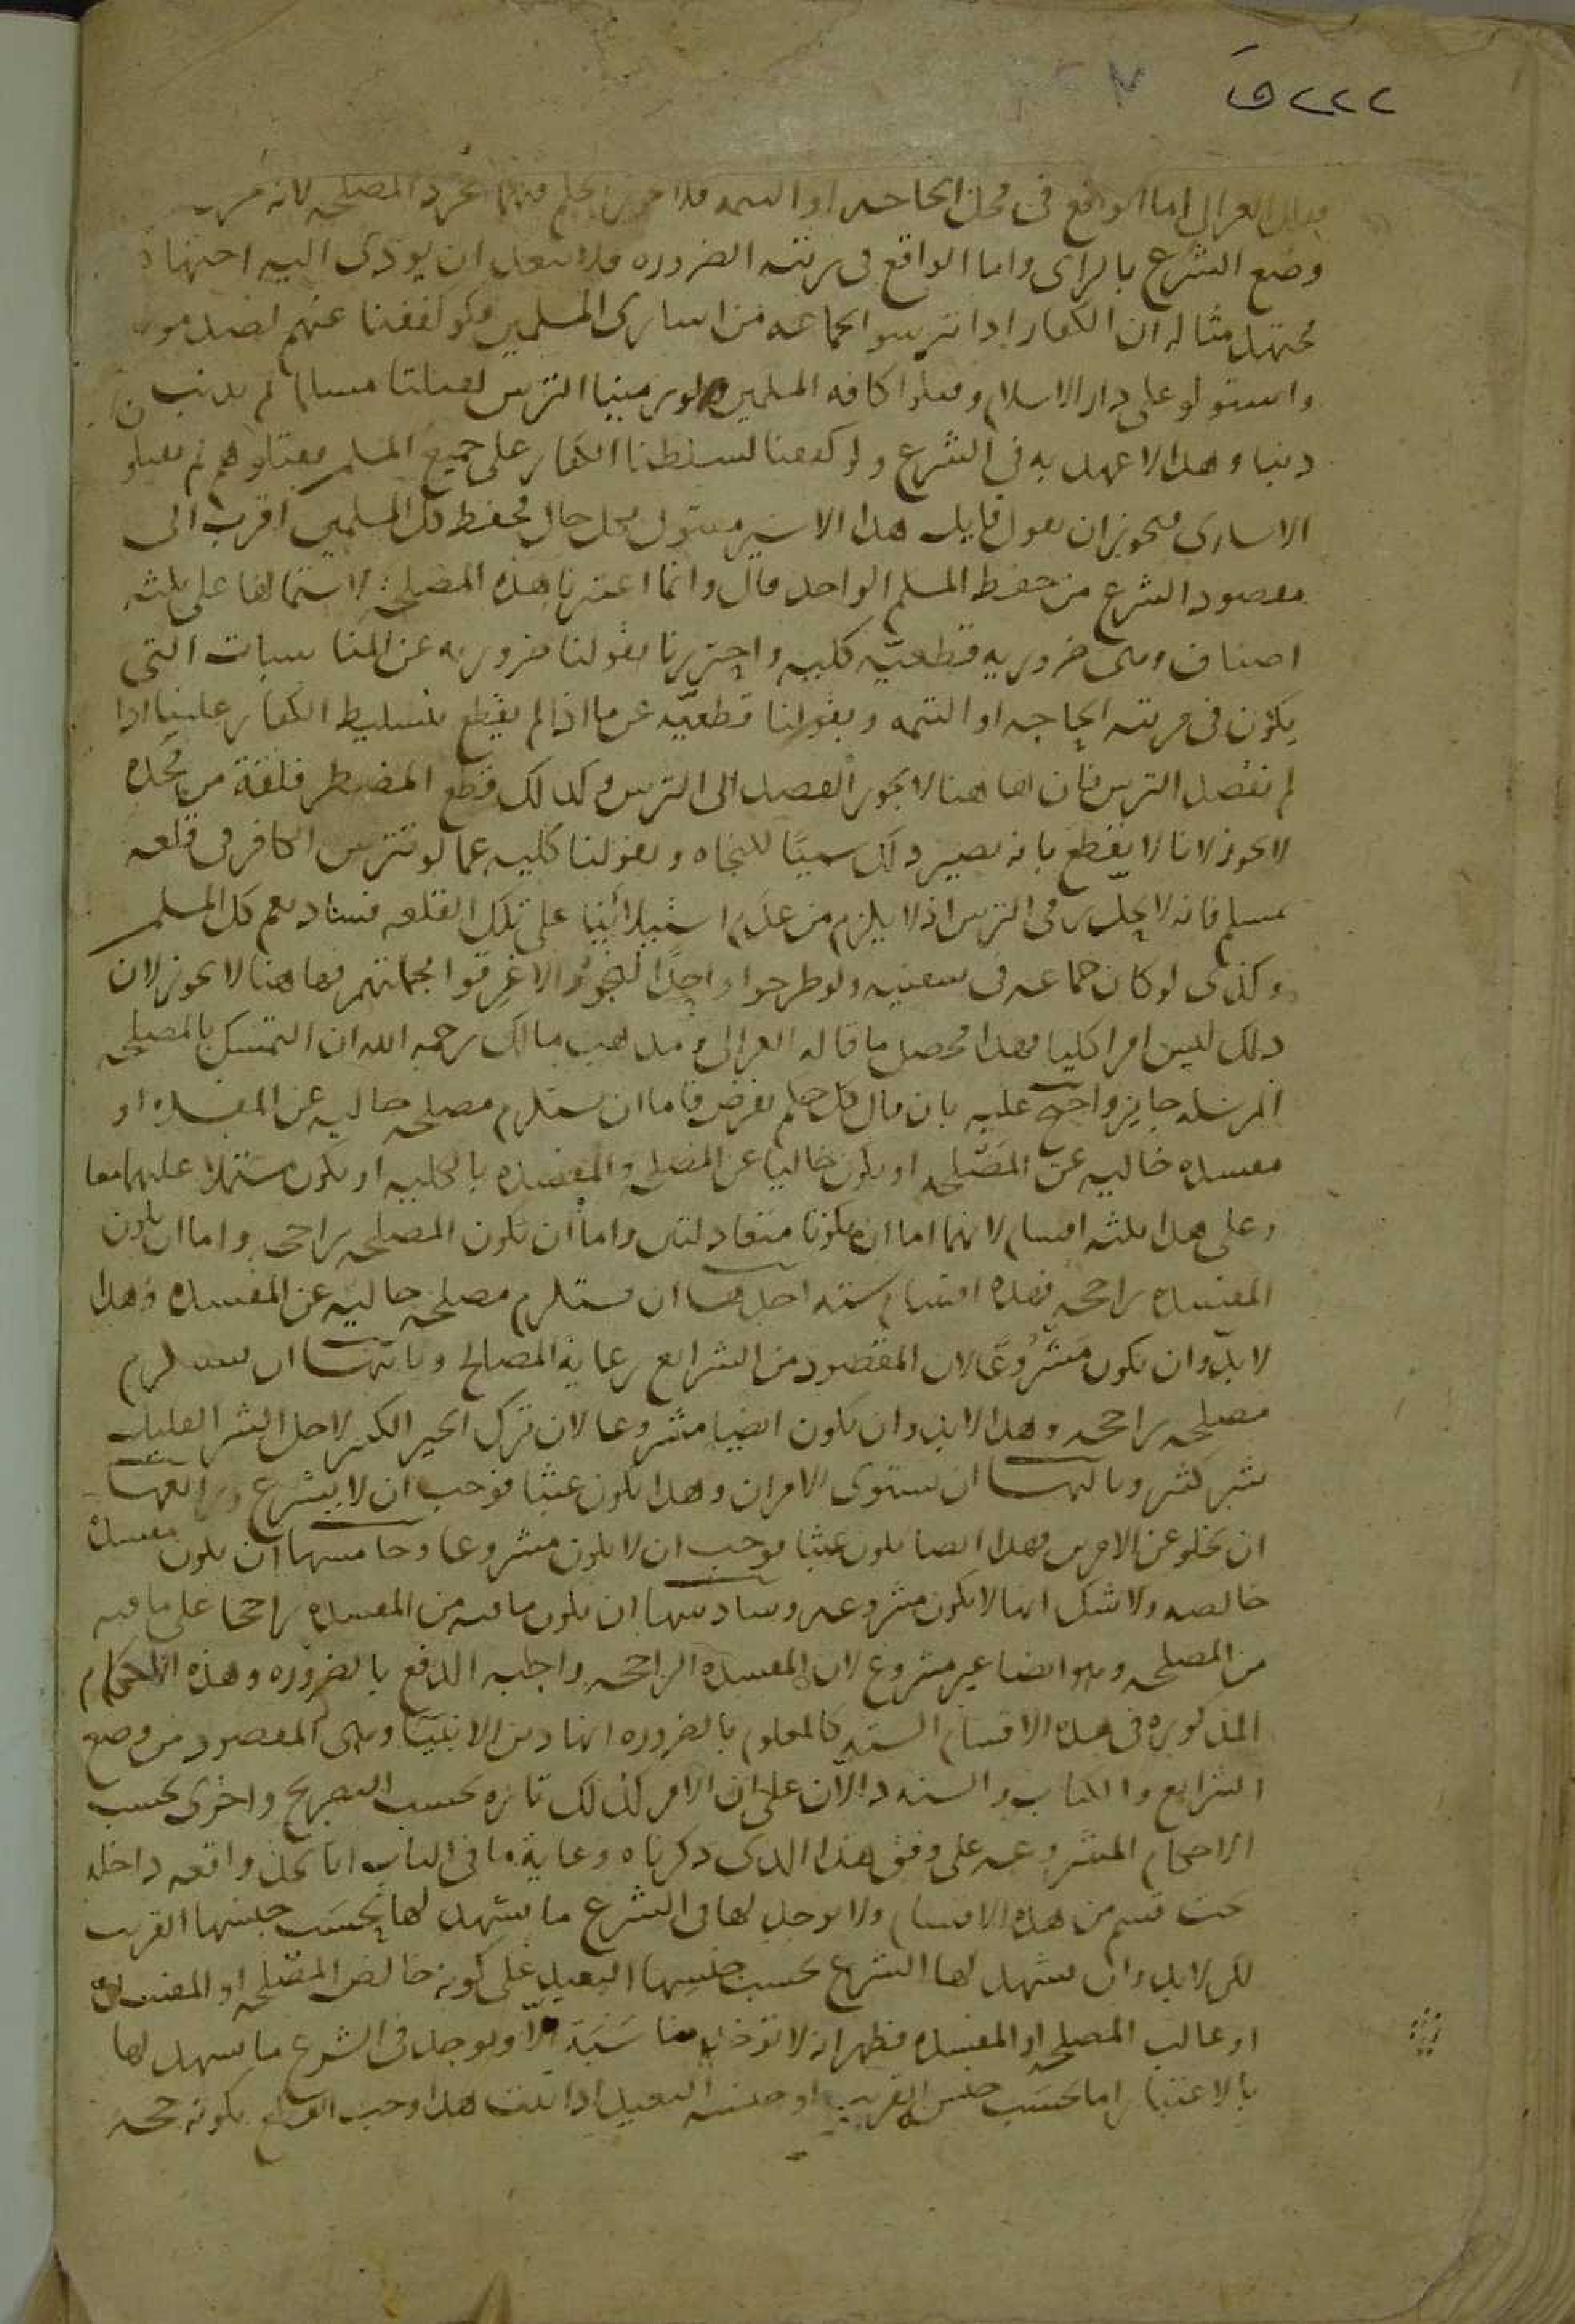 ٢٢٢ ق
فقال الغزالى اما الواقع فى محل الحاجه او التتمه فلا يجوز الحكم فيهما بمجرد المصلحه لانه يجرى
وضع الشرع بالراى واما الواقع فى رتبه الضروره فلا يبعد ان يودى اليه اجتهاد
مجتهد مثاله ان الكفار اذا تترسوا بجماعه من اسارى المسلمين فلو كففنا عنهم لصدمونا
واستولو على دار الاسلام وقتلوا كافه المسلمين ولو رمينا الترس لقتلنا مسلما لم يذنب
ذنبا وهذا لا عهد به فى الشرع ولو كففنا لسلطنا الكفار على جميع المسلمين فيقتلوهم ثم يقتلو
الاسارى فيجوز ان يقول قايل هذا الاسير مقتول بكل حال فحفظ كل المسلمين اقرب الى
مقصود الشرع من حفظ المسلم الواحد قال وانما اعتبرنا هذه المصلحه لاشتمالها على ثلثه
اصناف وهى ضروريه قطعيّه كليه واحترزنا بقولنا ضروريه عن المناسبات التى
يكون فى مرتبه الحاجه او التتمه وبقولنا قطعيّه عن ما اذا لم يقطع بتسليط الكفار علينا اذا
لم نقصد الترس فان هاهنا لا يجوز القصد الى الترس وكذلك قطع المضطر فلقة من فخذه
لا يجوز لانا لا نقطع بانه يصير ذلك سببًا للنجاه وبقولنا كليه عما لو تترس الكافر فى قلعه
بمسلم فانه لا يحلّ رمى الترس اذ لا يلزم من عدم استيلائنا على تلك القلعه فساد يعم كل المسلمين
وكذى لو كان جماعه فى سفينه ولو طرحوا واحدًا لنجوا والا غرقوا بجملتهم فهاهنا لا يجوز لان
ذلك ليس امرا كليا فهذا محصل ما قاله الغزالى ومذهب مالك رحمه الله ان التمسك بالمصلحه
المرسله جايز واحتج عليه بان قال كل حكم يفرض فاما ان يستلزم مصلحه خاليه عن المفسده او
مفسده خاليه عن المصلحه او يكون خاليا عن المصلحه والمفسده بالكليه او يكون مشتملا عليهما معا
وعلى هذا ثلثه اقسام لانهما اما ان يكونا متعادلتين واما ان تكون المصلحه راجحه واما ان يكون
المفسده راجحه فهذه اقسام سته احدها ان يستلزم مصلحه خاليه عن المفسده وهذا
لا بدّ وان يكون مشرُوعًا لان المقصود من الشرايع رعاية المصالح وثانيها ان يستلزم
مصلحه راجحه وهذا لا بد وان يكون ايضا مشروعا لان ترك الخير الكثير لاجل الشر القليل
شر كثير وثالثها ان يستوى الامران وهذا يكون عبثا فوجب ان لا يشرع ورابعها
ان يخلو عن الامرين فهذا ايضا يكون عبثا فوجب ان لا يكون مشروعا وخامسها ان يكون مفسده
خالصه ولا شك انها لا يكون مشروعه وسادسها ان يكون ما فيه من المفسده راجحا على ما فيه
من المصلحه وهو ايضا غير مشروع لان المفسده الراجحه واجبه الدفع بالضروره وهذه الاحكام
المذكوره فى هذه الاقسام السته كالمعلوم بالضروره انها دين الانبيا وهى المقصود من وضع
الشرايع والكتاب والسنه دالان على ان الامر كذلك تاره بحسب التصريح واخرى بحسب
الاحكام المشروعه على وفق هذا الذى ذكرناه وغاية ما فى الباب انا نجد واقعه داخله
تحت قسم من هذه الاقسام ولا يوجد لها فى الشرع ما يشهد لها بحسَب جنسها القريب
لكن لا بد وان يشهد لها الشرع بحسب جنسها البعيد على كونه خالص المصلحه او المفسده
او غالب المصلحه او المفسده فظهر انه لا توجد مناسَبَة الّا ويوجد فى الشرع ما يشهد لها
بالاعتبار اما بحَسَب جنسه القريب او جنسه البعيد اذا ثبت هذا وجب القطع بكونه حجه